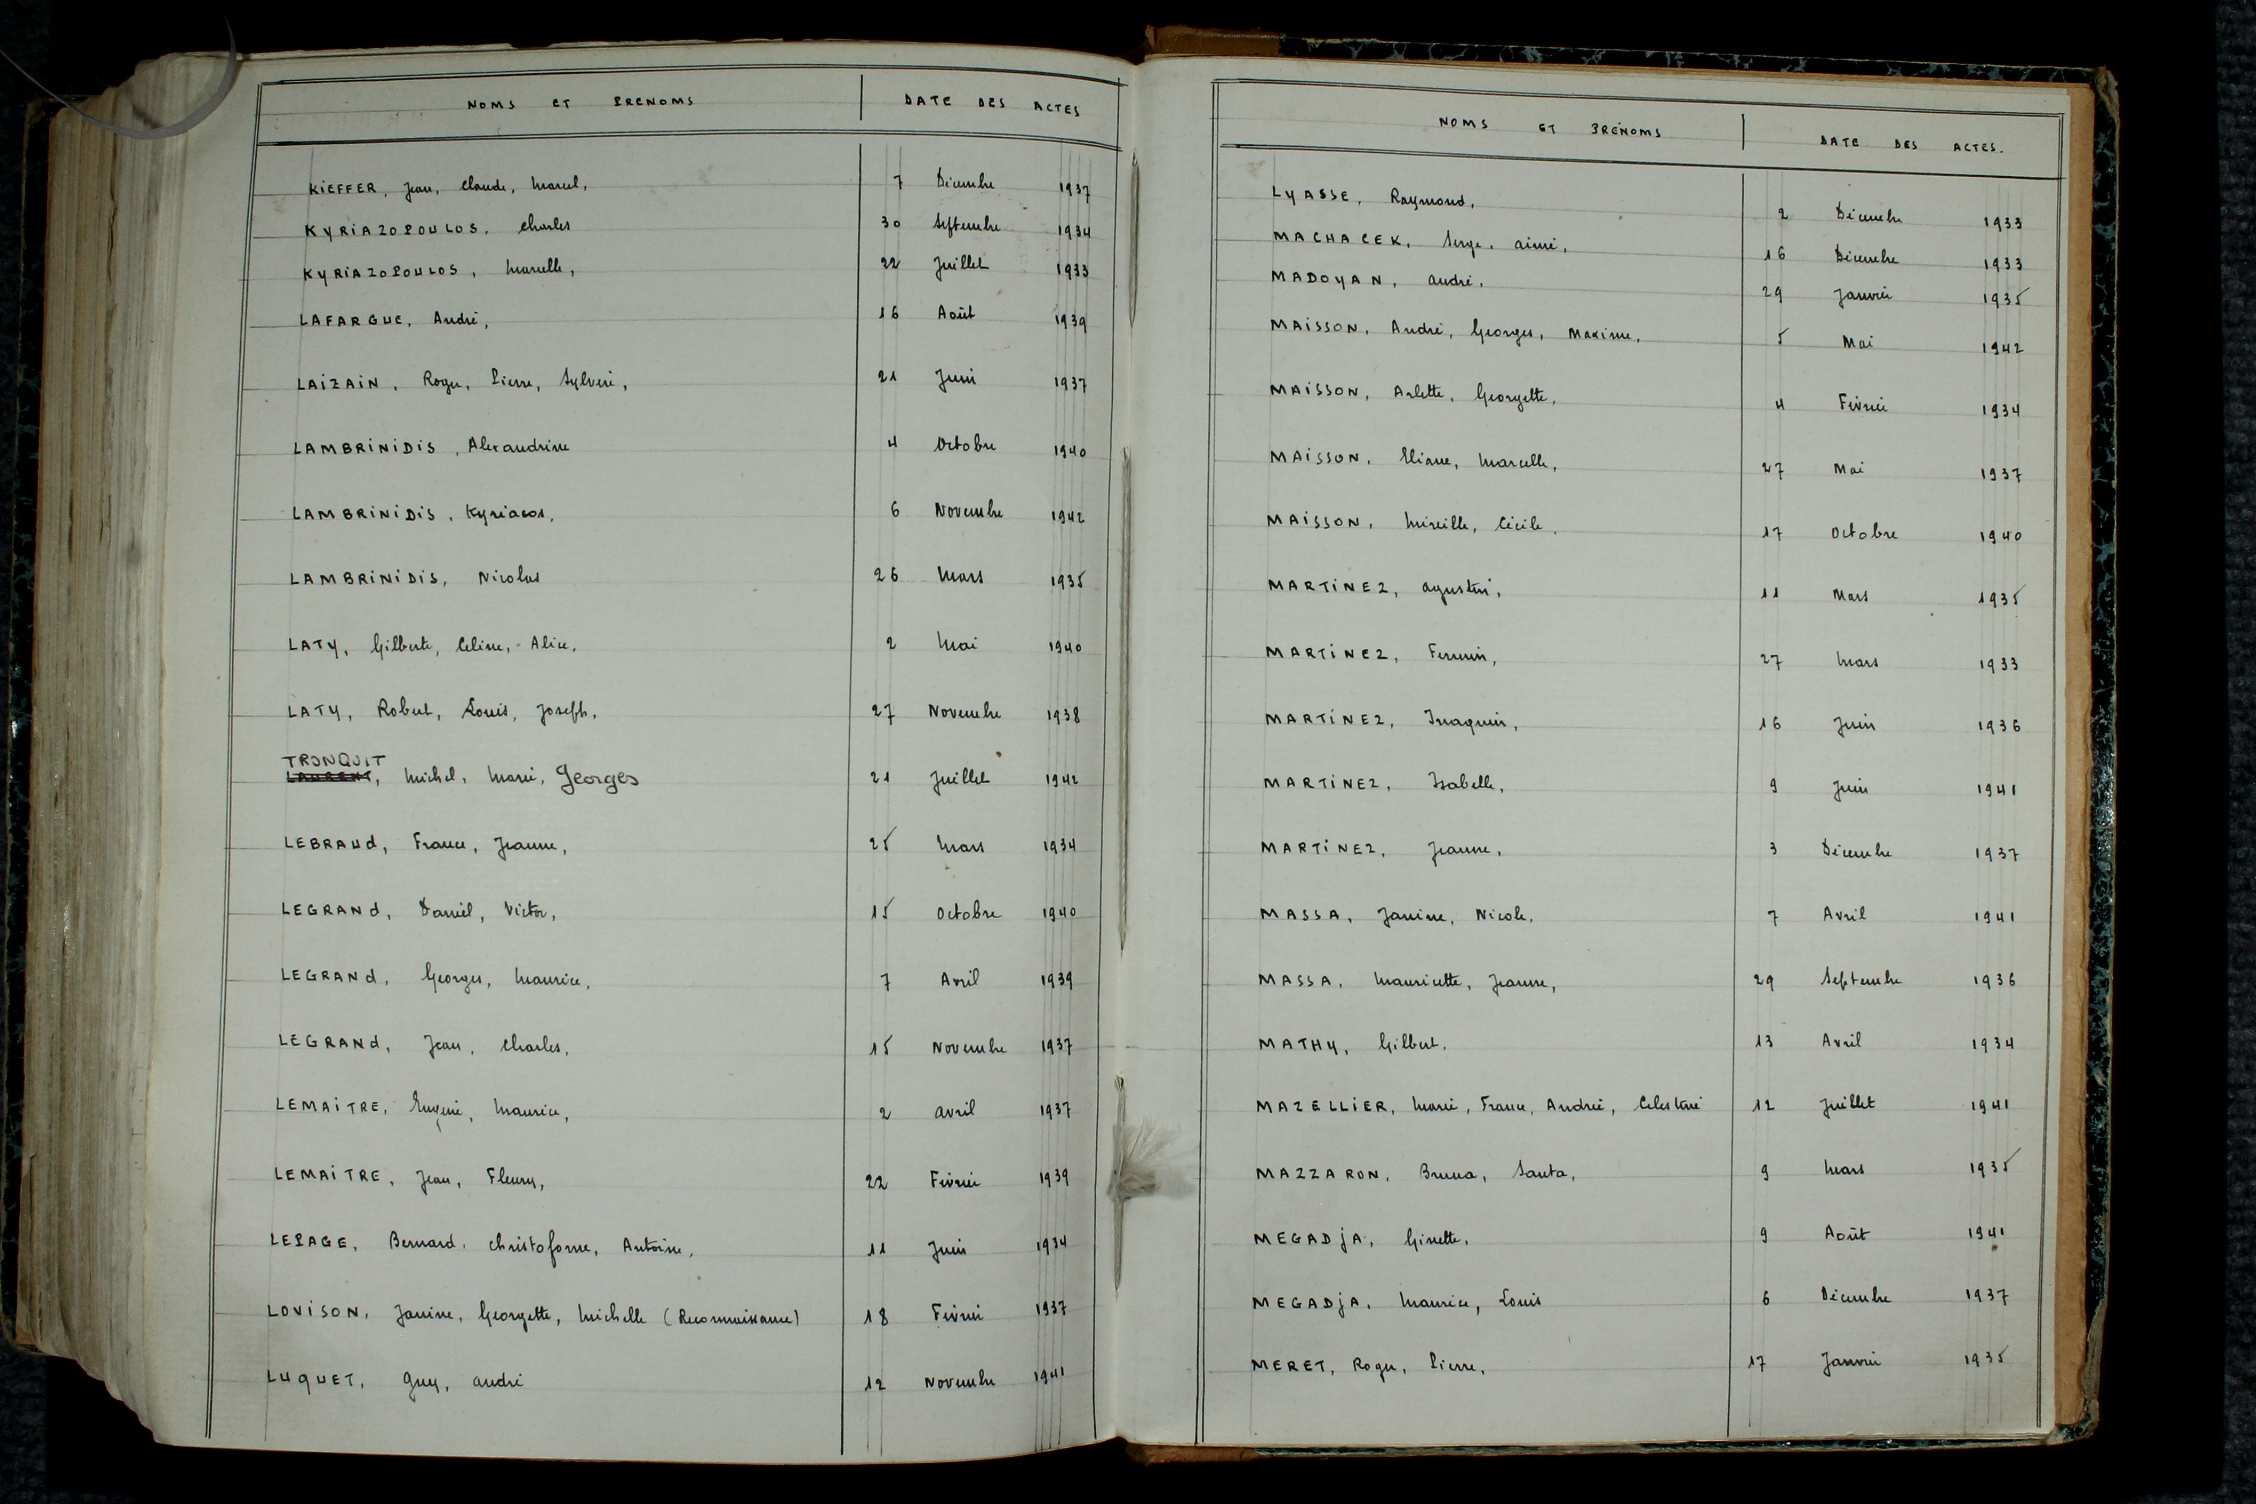 NOMS ET PRENOMS DATE DES ACTES
KIEFFER, Jean, Claude, Marcel, 7 Décembre 1937
KYRIAZOPOULOS, Charles 30 Septembre 1934
KYRIAZOPOULOS, Marcelle, 22 Juillet 1933
LAFARGUE, André, 16 Août 1939
LAIZAIN, Roger, Pierre, Sylvère, 21 Juin 1937
LAMBRINIDIS, Alexandrine 4 Octobre 1940
LAMBRINIDIS, Kyriacos, 6 Novembre 1942
LAMBRINIDIS, Nicolas 26 Mars 1935
LATY, Gilberte, Celine, Alice, 2 Mai 1940
LATY, Robert, Louis, Joseph, 27 Novembre 1938
TRONQUIT
LAURENT, Michel, Marie, Georges 21 Juillet 1942
LEBRAUD, France, Jeanne, 25 Mars 1934
LEGRAND, Daniel, Victor, 15 Octobre 1940
LEGRAND, Georges, Maurice, 7 Avril 1939
LEGRAND, Jean, Charles, 15 Novembre 1937
LEMAITRE, Eugène, Maurice, 2 Avril 1937
LEMAITRE, Jean, Fleury, 22 Février 1939
LEPAGE, Bernard, Christoforne, Antoine, 11 Juin 1934
LOVISON, Janine, Georgette, Michelle (Reconnaissance) 18 Février 1937
LUQUET, Guy, André 12 Novembre 1941
NOMS ET PRÉNOMS DATE DES ACTES.
LYASSE, Raymond, 2 Décembre 1933
MACHACEK, Serge, Aimé, 16 Décembre 1933
MADOYAN, André, 29 Janvier 1935
MAISSON, André, Georges, Maxime, 5 Mai 1942
MAISSON, Arlette, Georgette, 4 Février 1934
MAISSON, Eliane, Marcelle, 27 Mai 1937
MAISSON, Mireille, Cécile, 17 Octobre 1940
MARTINEZ, Agustin, 11 Mars 1935
MARTINEZ, Fermin, 27 Mars 1933
MARTINEZ, Juaquin, 16 Juin 1936
MARTINEZ, Isabelle, 9 Juin 1941
MARTINEZ, Jeanne, 3 Décembre 1937
MASSA, Janine, Nicole, 7 Avril 1941
MASSA, Mauricette, Jeanne, 29 Septembre 1936
MATHY, Gilbert, 13 Avril 1934
MAZELLIER, Marie, France, Andrée, Celestine 12 Juillet 1941
MAZZARON, Bruna, Santa, 9 Mars 1935
MEGADJA, Ginette, 9 Août 1941
MEGADJA, Maurice, Louis 6 Décembre 1937
MERET, Roger, Pierre, 17 Janvier 1935